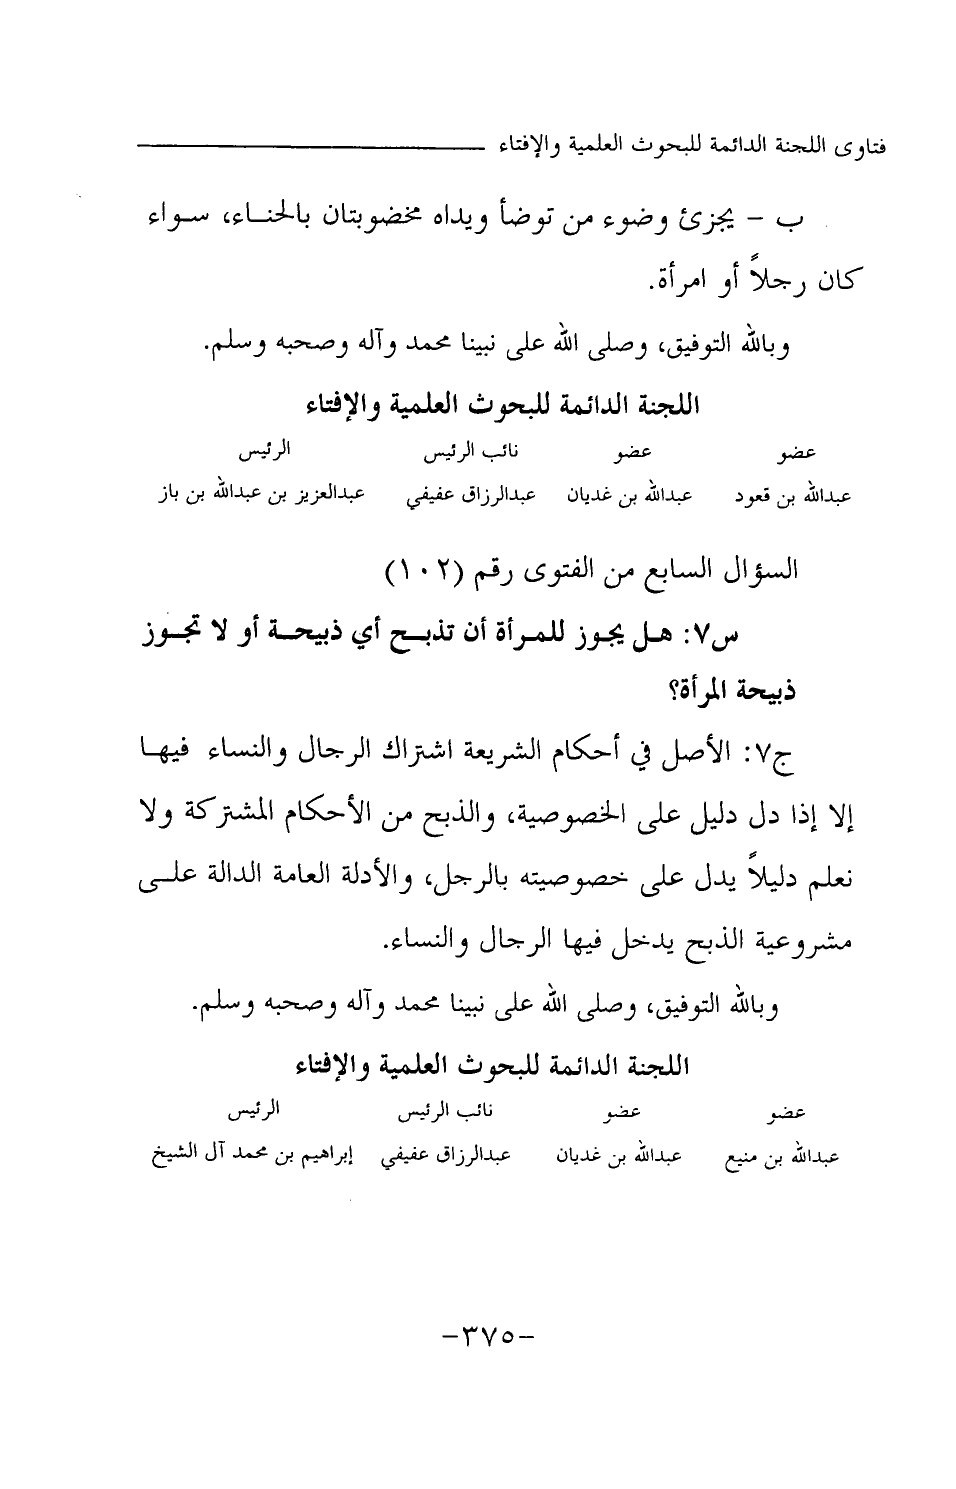 فتاوى اللجنة الدائمة للبحوث العلمية والإفتاء
ب – يجزئ وضوء من توضأ ويداه مخضوبتان بالحناء، سواء
كان رجلاً أو امرأة.
وبالله التوفيق، وصلى الله على نبينا محمد وآله وصحبه وسلم.
اللجنة الدائمة للبحوث العلمية والإفتاء
عضو عضو نائب الرئيس الرئيس
عبدالله بن قعود عبدالله بن غديان عبدالرزاق عفيفي عبدالعزيز بن عبدالله بن باز
السؤال السابع من الفتوى رقم (١٠٢)
س٧: هل يجوز للمرأة أن تذبح أي ذبيحة أو لا تجوز
ذبيحة المرأة؟
ج٧: الأصل في أحكام الشريعة اشتراك الرجال والنساء فيها
إلا إذا دل دليل على الخصوصية، والذبح من الأحكام المشتركة ولا
نعلم دليلاً يدل على خصوصيته بالرجل، والأدلة العامة الدالة على
مشروعية الذبح يدخل فيها الرجال والنساء.
وبالله التوفيق، وصلى الله على نبينا محمد وآله وصحبه وسلم.
اللجنة الدائمة للبحوث العلمية والإفتاء
عضو عضو نائب الرئيس الرئيس
عبدالله بن منيع عبدالله بن غديان عبدالرزاق عفيفي إبراهيم بن محمد آل الشيخ
–٣٧٥–